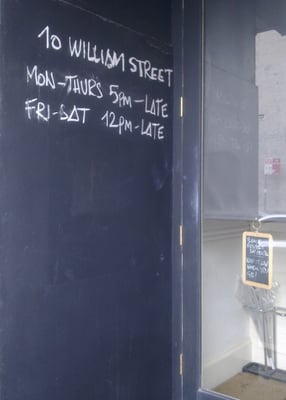 10 WILLIAM STREET
MON-THURS 5PM-LATE
FRI-SAT 12PM-LATE